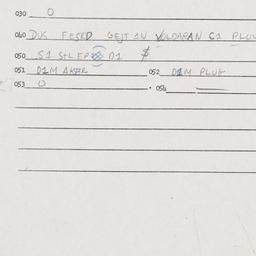 030 0
040 DUS FESED GEJT IN VOLDARAN G1 PLUV
050 S1 StLEP D1 $
051 D1M AKAR 052 D1M PLUG
053 0 054